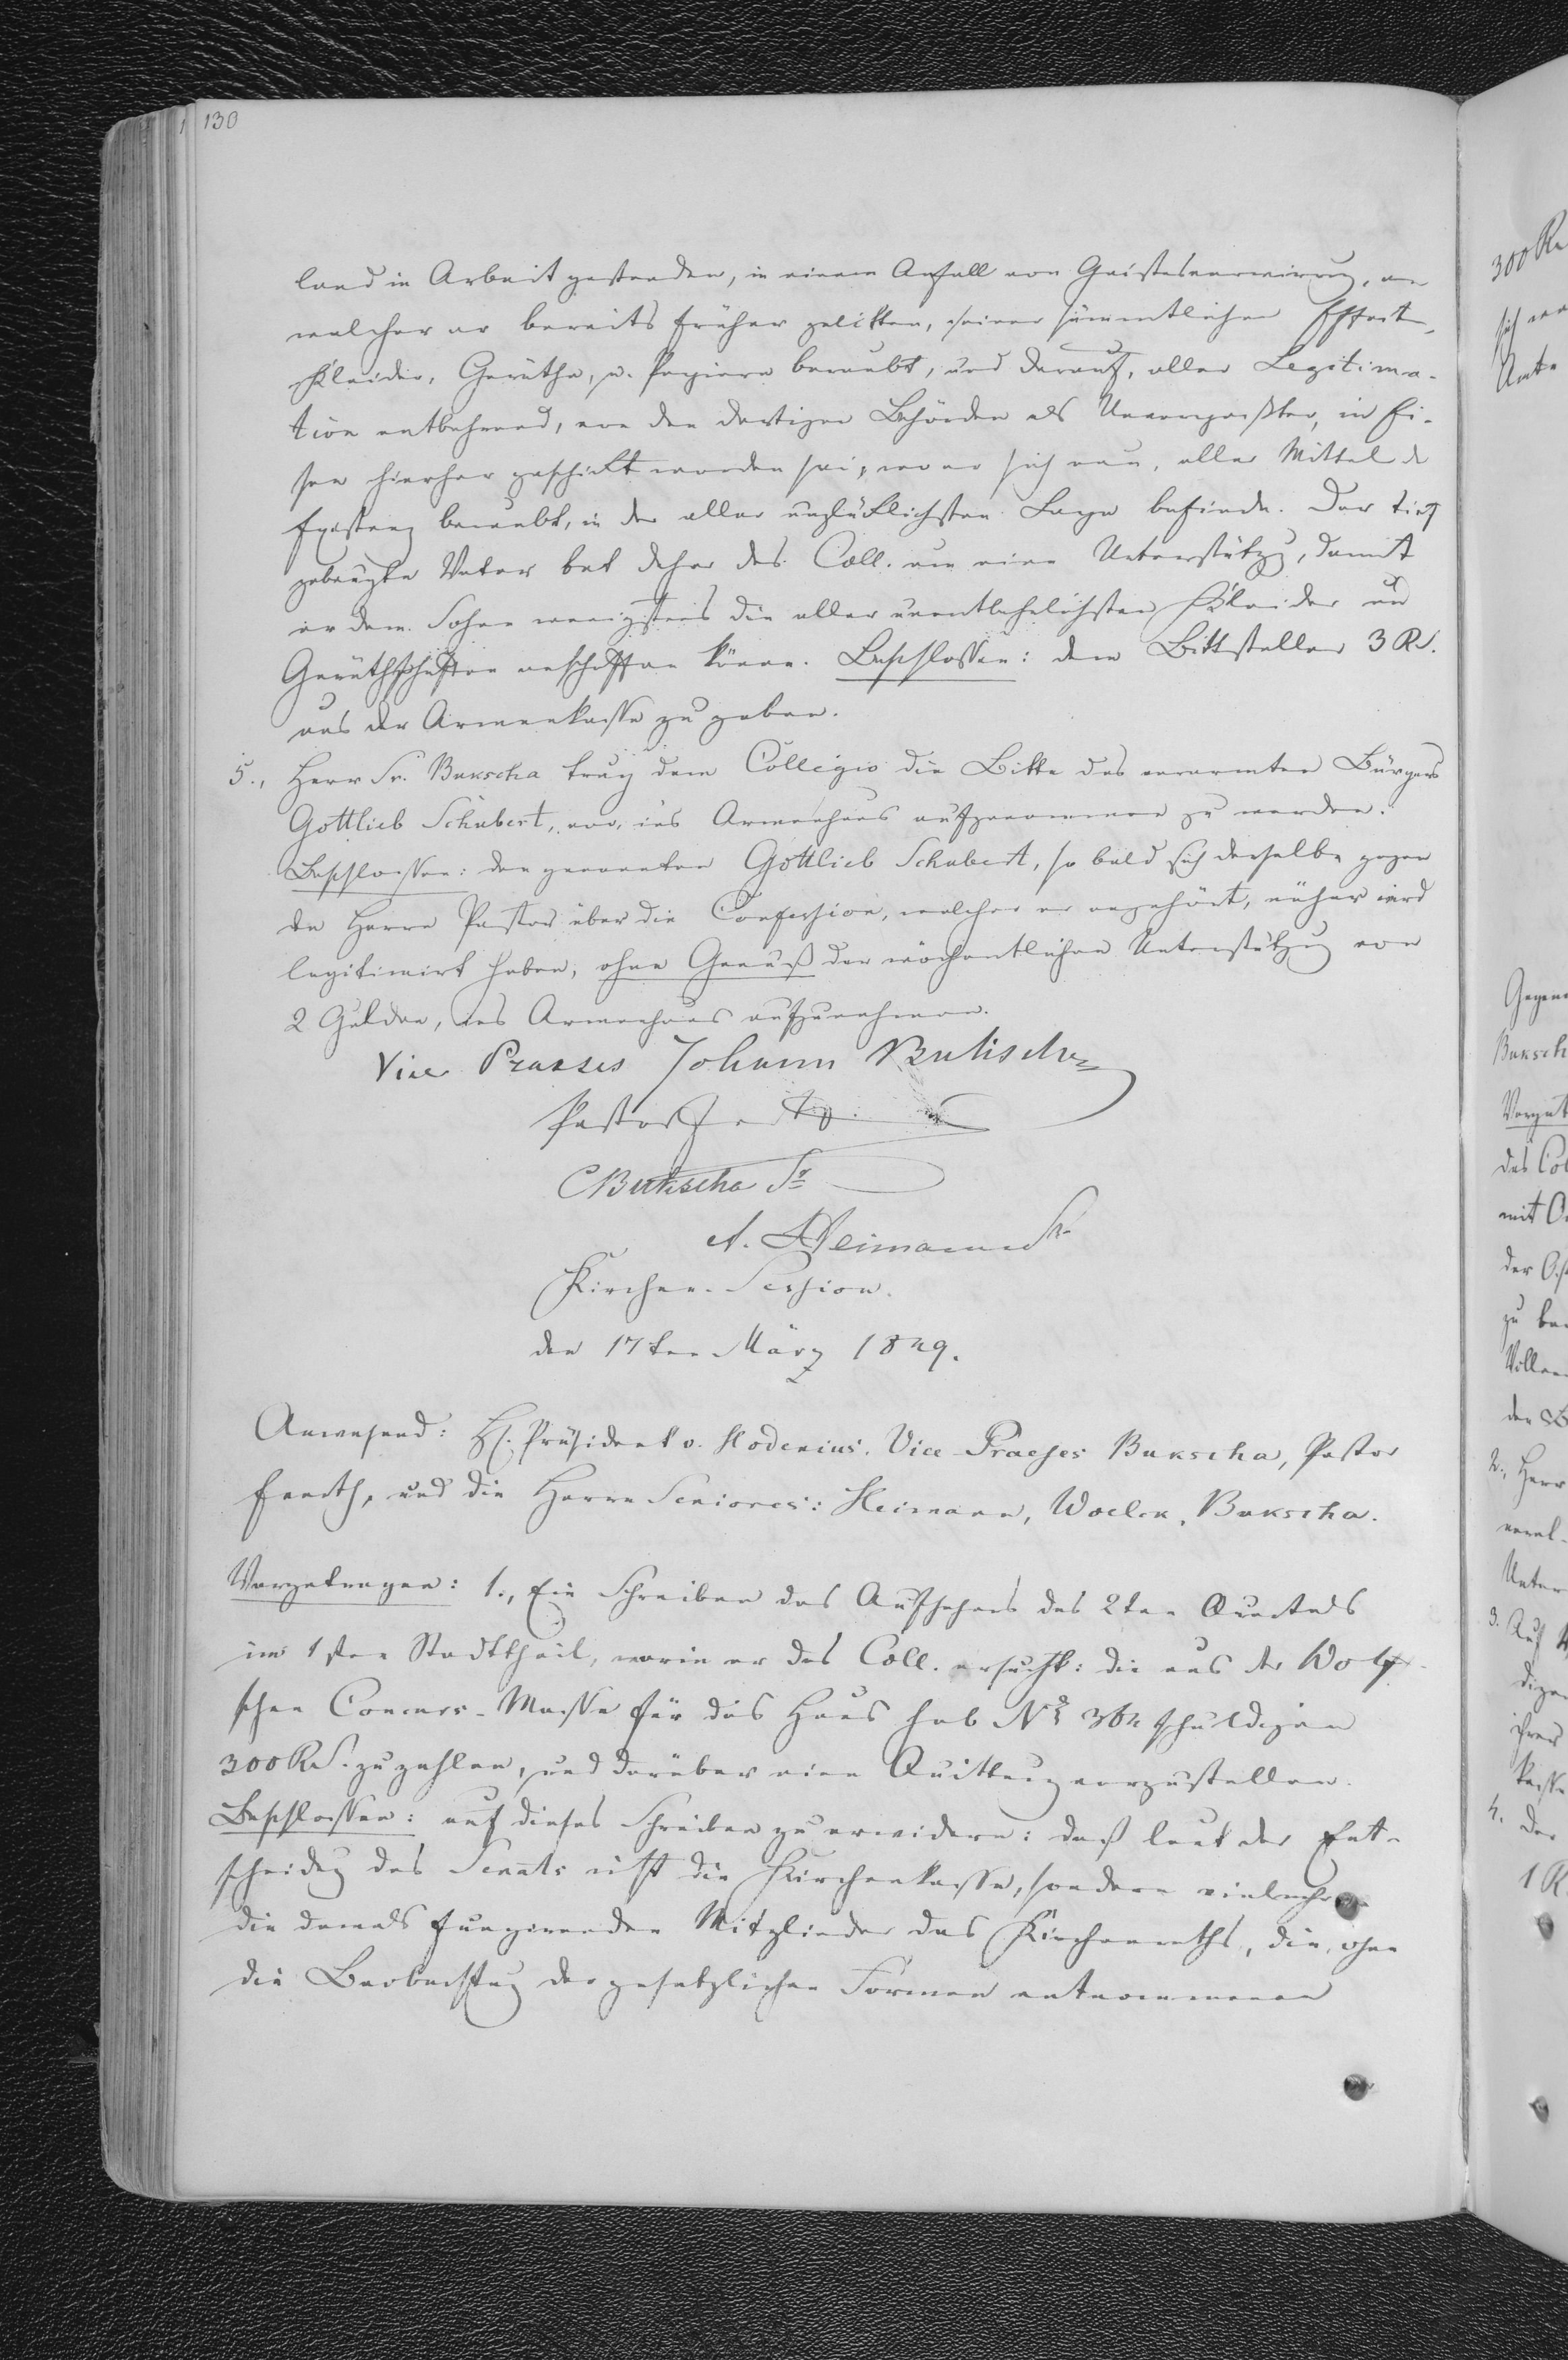 130
land in Arbeit gestanden, in einem Anfall von Geistesverwirrung, an
welcher er bereits früher gelitten, seiner sämmtlichen Effect.,
Kleider, Geräthe, u. Papiere beraubt, und darauf, aller Legitima-
tion entbehrend, von den dortigen Behörden als Unverpaßter, in Ei-
sen hierher geschickt worden sei, wo er sich nun, aller Mittel d
Existenz beraubt, in der aller unglücklichsten Lage befinde. Der tief
gebeugte Vater bat daher das Coll. um eine Unterstützg, damit
er dem Sohne wenigstens die aller unentbehrlichsten Kleider und
Geräthschaften anschaffen könne. Beschlossen: dem Bittsteller 3 RS.
aus der Armenkasse zu geben.
5., Herr Sr. Bukscha trug dem Collegio die Bitte des verarmten Bürgers
Gottlieb Schubert, vor, ins Armenhaus aufgenommen zu werden.
Beschlossen: den genannten Gottlieb Schubert, so bald sich derselbe gegen
den Herrn Pastor über die Confession, welcher er angehört, näher wird
legitimirt haben, ohne Genuß der wöchentlichen Unterstützung von
2 Gulden, ins Armenhaus aufzunehmen.
Vice Praeses Johann Bukscha
Pastor
CBukscha Sr
A. Heimann Sr
Kirchen-Session.
den 17ten März 1849.
Anwesend: H. Präsident v. Hodenius, Vice-Praeses Bukscha, Pastor
und die Herrn Seniores: Heimann, Woelck, Bukscha.
Vorgetragen: 1., Ein Schreiben des Aufsehers des 2ten Quartals
im 1sten Stadttheil, worin er das Coll. ersucht: die aus der Wolf-
schen Concurs-Masse für das Haus sub No 364 schuldigen
300 RS. zu zahlen, und darüber eine Quittung vorzustellen.
Beschlossen: auf dieses Schreiben zu erwidern: daß laut der Ent-
scheidg des Senats nicht die Kirchenkasse, sondern vielmehr
die damals fungirenden Mitglieder des Kirchenraths, die, ohne
die Beobachtung der gesetzlichen Formen entnommenen
300 RS
sich
Amt
Gegen
Buksch
Vorget
das Col
mit
der
zu
Willen
der
2., Herr
Unter
3. Auf
ihres
kasse
4. Der
1 R